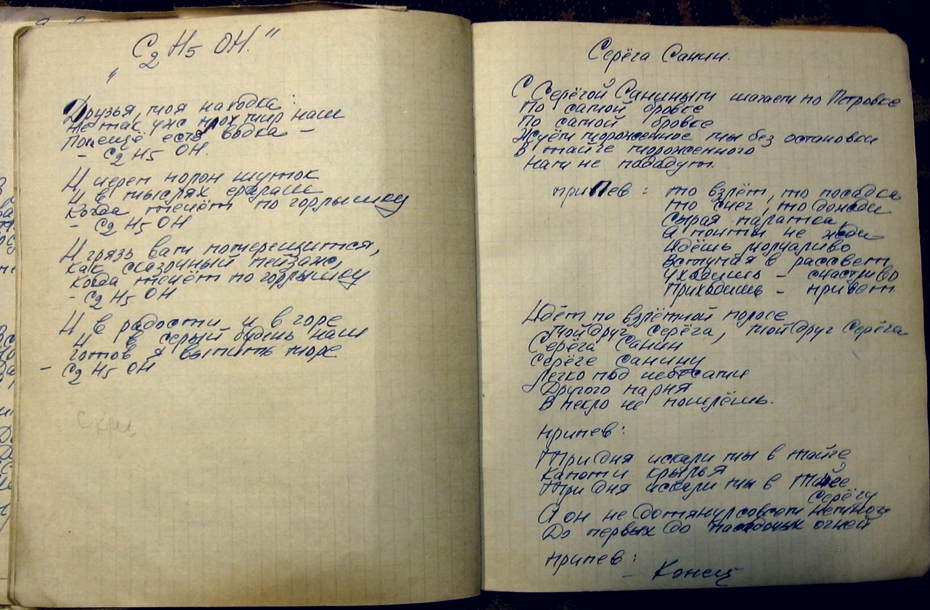 „C2H5 OH."
Друзья, моя находка:
Не так уж прох мир наш
Пок еще есть водка –
- C2H5 OH.
И череп полон шуток
И в мыслях ералаш
Когда течёт по горлышку
- C2H5 OH
И грязь вам померещится,
Как сказочный пейзаж,
Когда течёт по горлышку
- C2H5 OH
И в радости и в горе
И в серый будень наш
готов я выпить море
- C2H5 OH
Серёга Санин.
С Серёгой Саниным шагаем по Петровке
По самой бровке
По самой бровке
Жуём мороженное мы без остановки
В тайге мороженного
Нам не подадут.
припев: то взлёт, то посадка
то снег, то дожди
Сырая палатка,
а почты не жди
Идёшь молчаливо
Вступая в рассвет
Уходишь – счастливо
Приходишь – привет
Идёт по взлётной полосе
Мой друг Серёга, мой друг Серёга
Серёга Санин
Серёге Санину
Легко под небесами
Другого парня
В пекло не пошлёшь.
припев:
Три дня искали мы в тайге
Капот и крылья
Три дня искали мы в тайге
Серёгу
А он не дотянул совсем немного
До первых до посадочных огней
припев:
– Конец